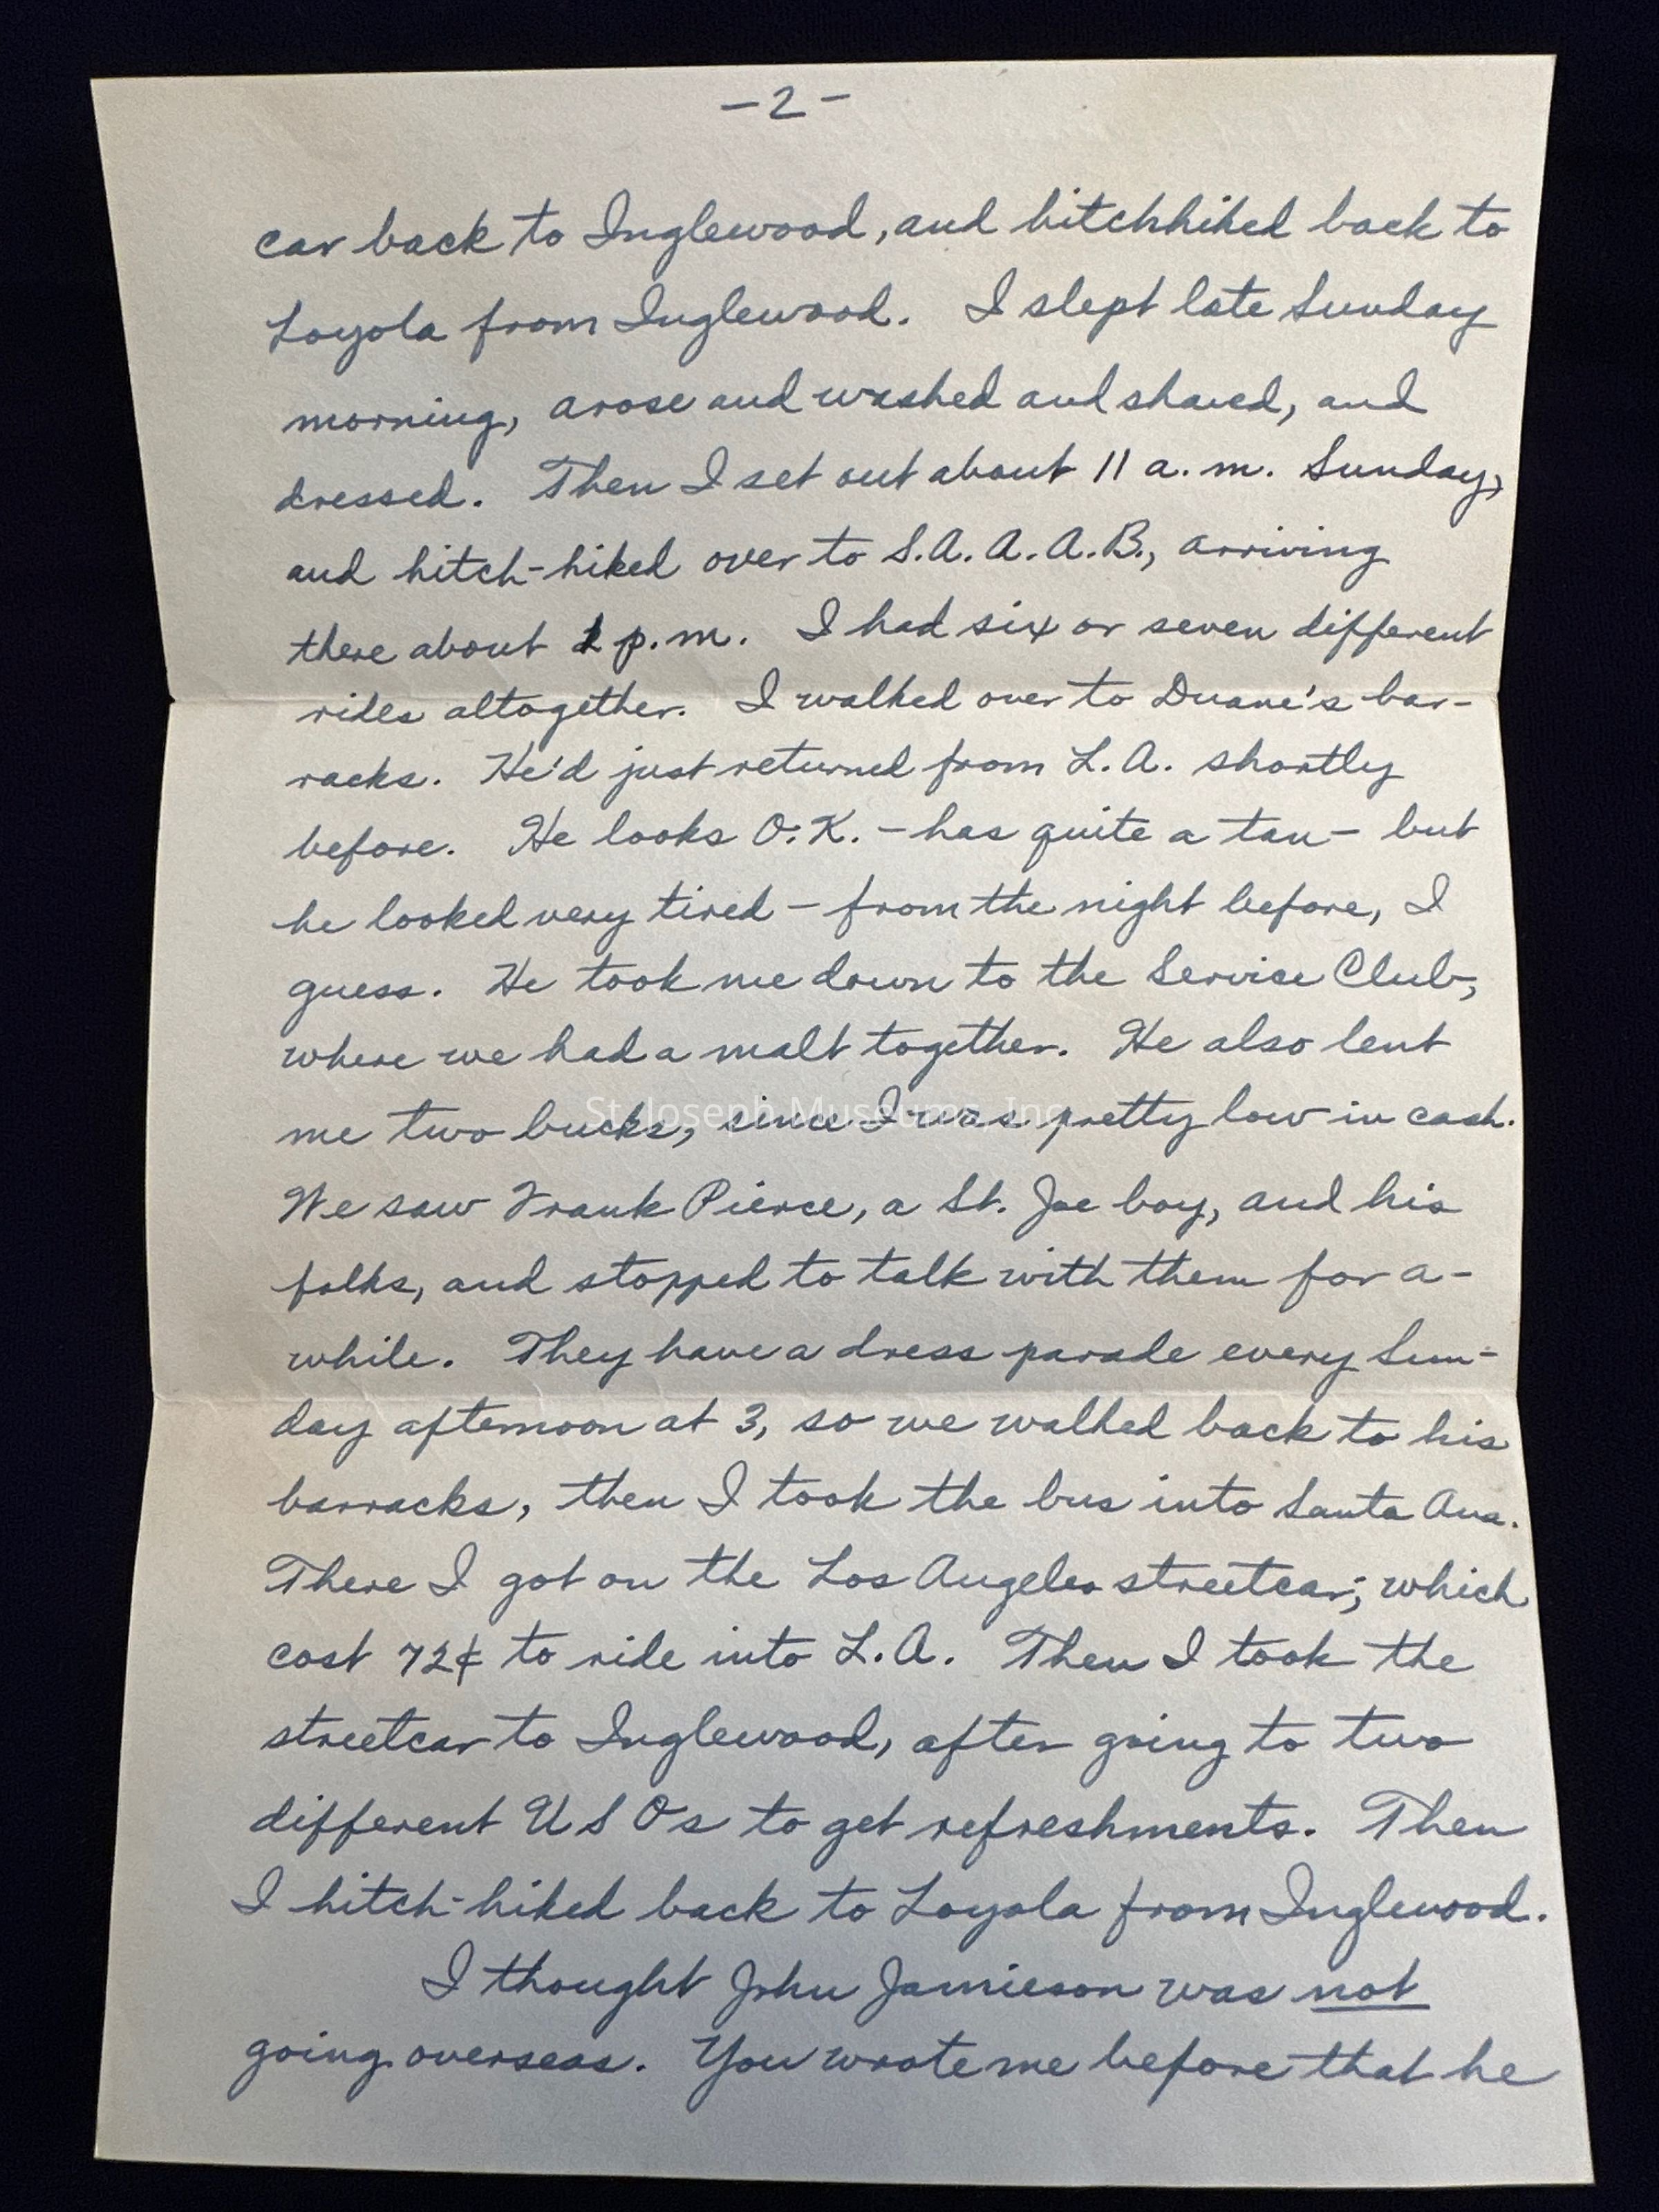 -2-
car back to Inglewood, and hitchhiked back to
Loyola from Inglewood. I slept late Sunday
morning, arose and washed and shaved, and
dressed. Then I set out about 11 a.m. Sunday,
and hitch-hiked over to S.A.A.A.B., arriving
there about p.m. I had six or seven different
rides altogether. I walked over to Duane's bar-
racks. He'd just returned from L.A. shortly
before. He looks O.K. - has quite a tan - but
he looked very tired - from the night before, I
guess. He took me down to the Service Club,
where we had a malt together. He also lent
me two bucks, since I was pretty low in cash.
St. Joseph Museums, Inc.
We saw Frank Pierce, a St. Joe boy, and his
folks, and stopped to talk with them for a-
while. They have a dress parade every Sun-
day afternoon at 3, so we walked back to his
barracks, then I took the bus into Santa Ana.
There I got on the Los Angeles streetcar, which
cost 72¢ to ride into L.A. Then I took the
streetcar to Inglewood, after going to two
different USOs to get refreshments. Then
I hitch-hiked back to Loyola from Inglewood.
I thought John Jamieson was not
going overseas. You wrote me before that he